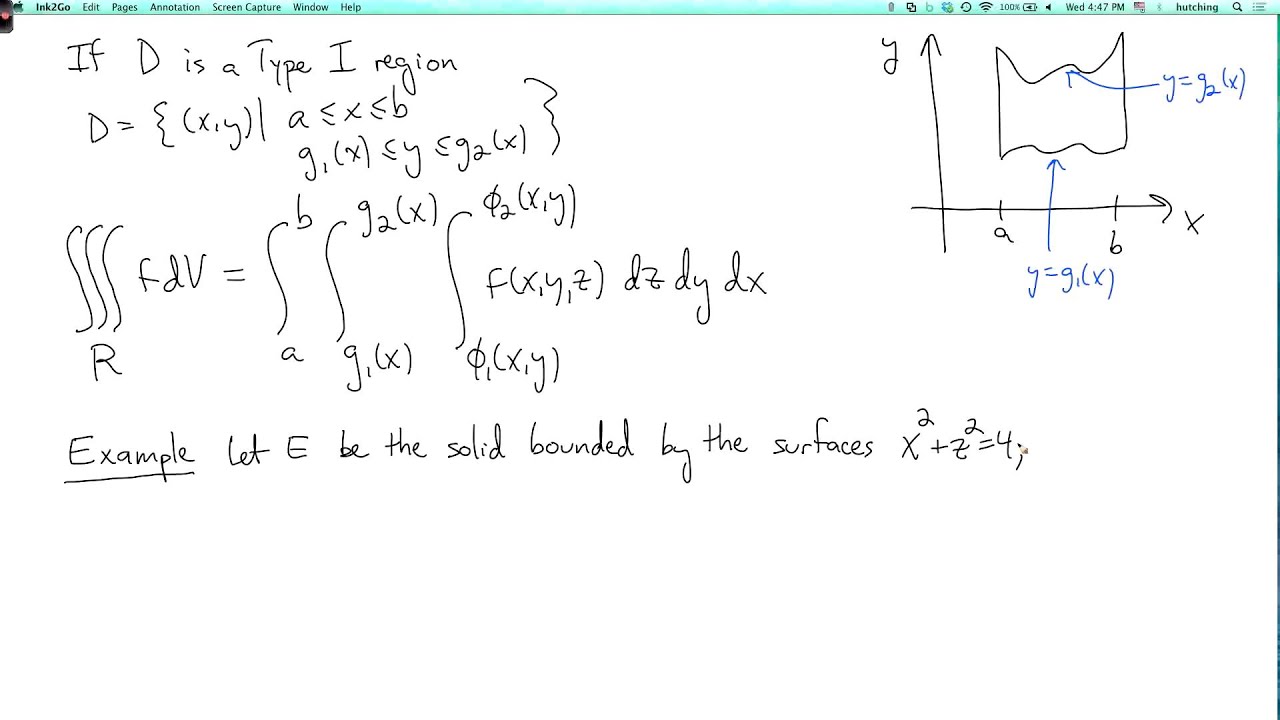 Ink2Go Edit Pages Annotation Screen Capture Window Help 100% Wed 4:47 PM hutching
If D is a Type I region
D = { (x,y) | a ≤ x ≤ b
g₁(x) ≤ y ≤ g₂(x) }
∭_R f dV = ∫_a^b ∫_{g₁(x)}^{g₂(x)} ∫_{ϕ₁(x,y)}^{ϕ₂(x,y)} f(x,y,z) dz dy dx
y
y=g₂(x)
a
b
x
y=g₁(x)
Example Let E be the solid bounded by the surfaces x²+z²=4;